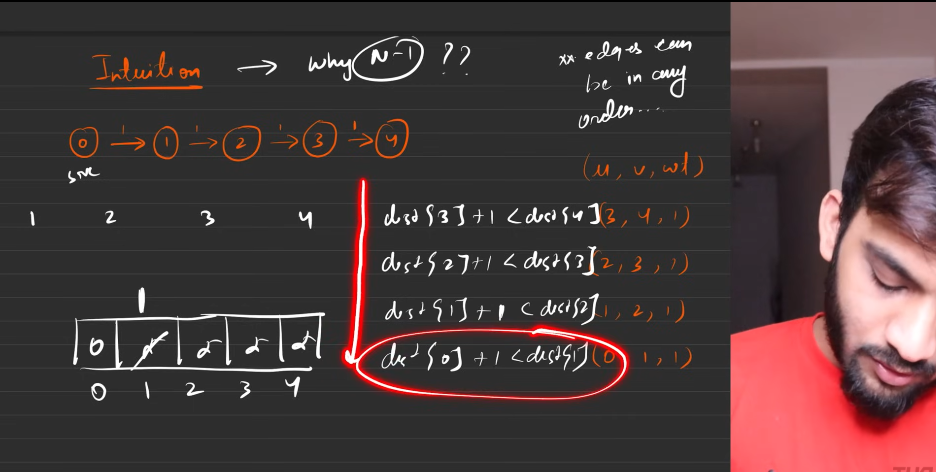 Intuition → why N-1 ??
** edges can
be in any
order....
0 1→ 1 1→ 2 1→ 3 1→ 4
src
(u, v, wt)
1 2 3 4
dist[3] + 1 < dist[4] (3, 4, 1)
dist[2] + 1 < dist[3] (2, 3, 1)
dist[1] + 1 < dist[2] (1, 2, 1)
dist[0] + 1 < dist[1] (0, 1, 1)
1
0
0 1 2 3 4